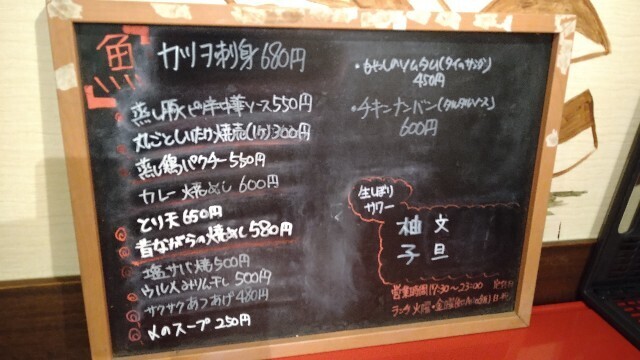 魚
カツヲ刺身 680円
蒸し豚ピ辛中華ソース 550円
丸ごとしいたけ焼売(1ヶ)300円
蒸し鶏パクチー 550円
カレー焼めし 600円
とり天 650円
昔ながらの焼めし 580円
塩サバ焼 500円
ウルメみりん干し 500円
サクサクあつあげ 480円
〆のスープ 250円
・もやしのソムタム(タイのサラダ)
450円
・チキンナンバン(タルタルソース)
600円
生しぼり
サワー
柚子
文旦
営業時間 17:30〜23:00
ランチ 火曜・金曜